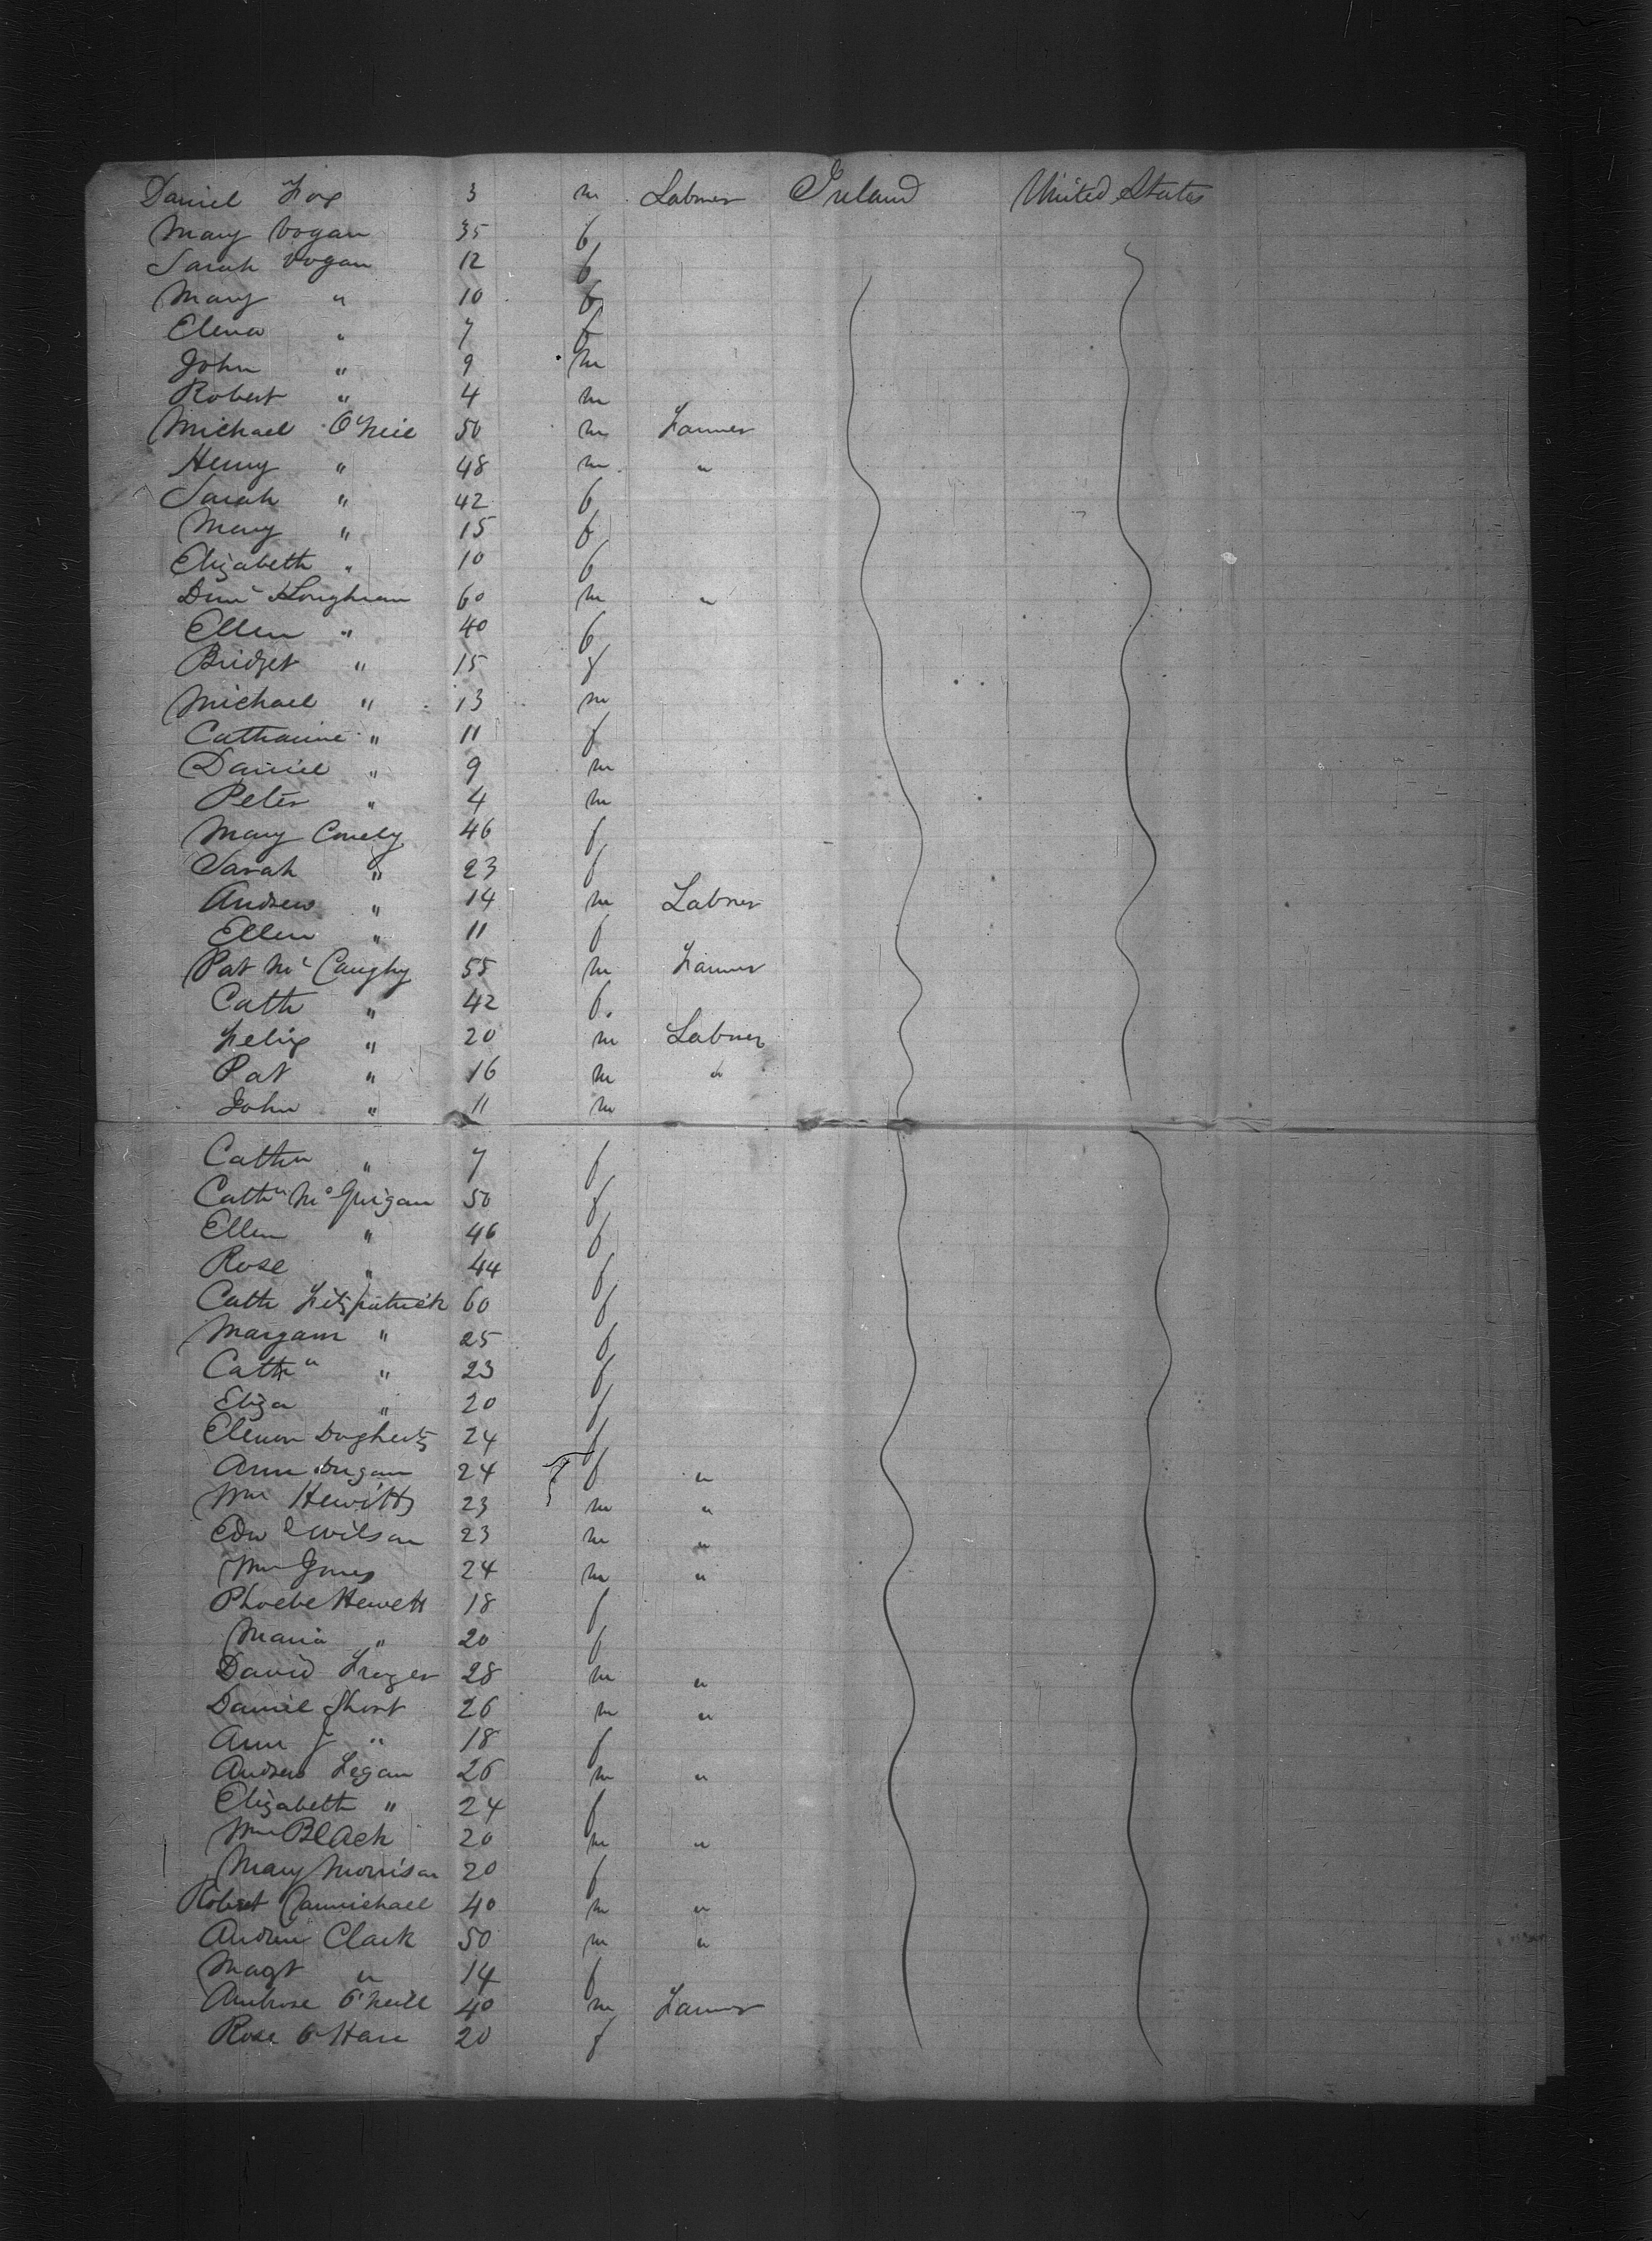 Daniel Fox 3 m Labourer Ireland United States
Mary Vogan 35 f
Sarah Vogan 12 f
Mary " 10 f
Elena " 7 f
John " 9 m
Robert " 4 m
Michael O'Neil 50 m Farmer
Henry " 48 m "
Sarah " 42 f
Mary " 15 f
Elizabeth " 10 f
60 m "
Ellen " 40 f
Bridget " 15 f
Michael " 13 m
Catharine " 11 f
Daniel " 9 m
Peter " 4 m
Mary Conely 46 f
Sarah " 23 f
Andrew " 14 m Labrer
Ellen " 11 f
Pat McCaughy 55 m Farmer
Cath " 42 f.
Felix " 20 m Labrer
Pat " 16 m "
John " 11 m
Cathn " 7 f
Cathn McGuigan 50 f
Ellen " 46 f
Rose " 44 f
Cath Fitzpatrick 60 f
Margam " 25 f
Cathn " 23 f
Eliza " 20 f
Elenor Dogherty 24 f
Ann Dugan 24 f "
Wm Hewitt 23 m "
Edwd Wilson 23 m "
Wm Jones 24 m "
Phoebe Hewett 18 f
Maria " 20 f
David Frazer 28 m "
Daniel Short 26 m "
Ann J " 18 f
Andrew Legan 26 m "
Elizabeth " 24 f
Wm Black 20 m "
Mary Morrison 20 f
Robert Carmichael 40 m "
Andrew Clark 50 m "
Magt " 14 f
Ambrose O'Neill 40 m Farmer
Rose O'Hare 20 f